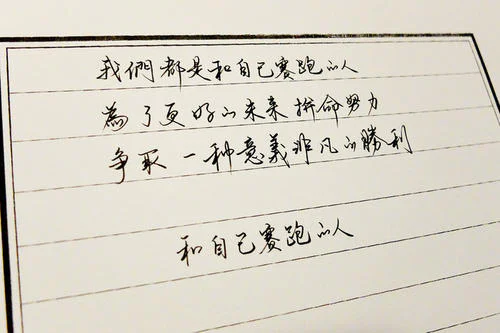 我們都是和自己赛跑的人
為了更好的未来拚命努力
争取一种意義非凡的勝利
和自己赛跑的人